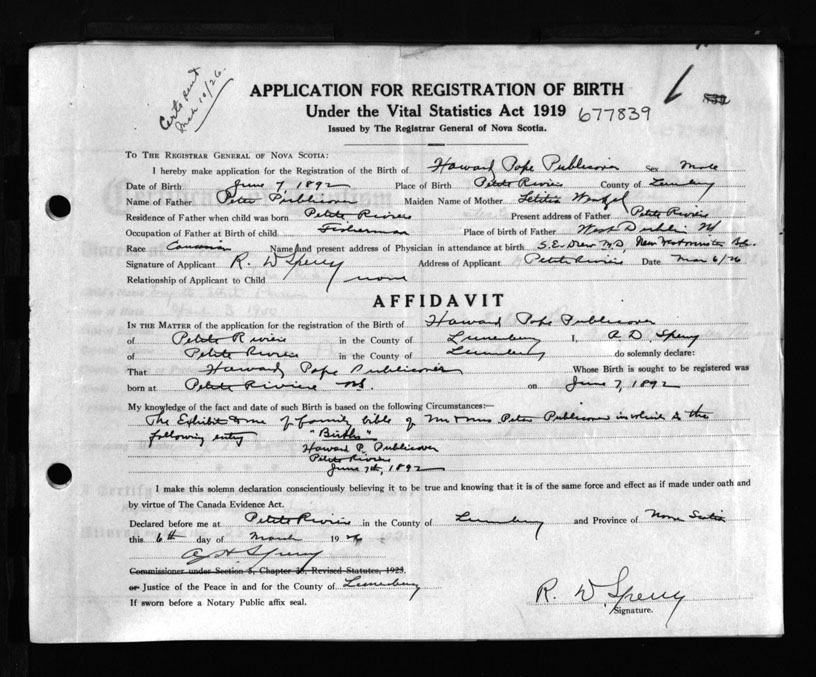 Certs sent
Mch 10/26.
APPLICATION FOR REGISTRATION OF BIRTH
Under the Vital Statistics Act 1919 677839
Issued by The Registrar General of Nova Scotia.
TO THE REGISTRAR GENERAL OF NOVA SCOTIA:
I hereby make application for the Registration of the Birth of Howard Pope Publicover Sex Male
Date of Birth June 7, 1892 Place of Birth Petite Riviere County of Lunenburg
Name of Father Peter Publicover Maiden Name of Mother Letitia
Residence of Father when child was born Petite Riviere Present address of Father Petite Riviere
Occupation of Father at Birth of child Fisherman Place of birth of Father West Dublin NS
Race Name and present address of Physician in attendance at birth S.E. Drew M.D, New Westminster B.C.
Signature of Applicant R. W Sperry Address of Applicant Petite Riviere Date Mar 6/26
Relationship of Applicant to Child none
AFFIDAVIT
IN THE MATTER of the application for the registration of the Birth of Howard Pope Publicover
of Petite Riviere in the County of Lunenburg I, R. D. Sperry
of Petite Riviere in the County of Lunenburg do solemnly declare:
That Howard Pope Publicover Whose Birth is sought to be registered was
born at Petite Riviere NS on June 7, 1892
My knowledge of the fact and date of such Birth is based on the following Circumstances:—
The Exhibit to me of family bible of Mr & Mrs. Peter Publicover in which is the
following entry "Births"
Howard P. Publicover
Petite Riviere
June 7th, 1892
I make this solemn declaration conscientiously believing it to be true and knowing that it is of the same force and effect as if made under oath and
by virtue of The Canada Evidence Act.
Declared before me at Petite Riviere in the County of Lunenburg and Province of Nova Scotia
this 6th day of March 1926
Sperry
Commissioner under Section 5, Chapter 38, Revised Statutes, 1923.
or Justice of the Peace in and for the County of Lunenburg
If sworn before a Notary Public affix seal.
R. W. Sperry
Signature.